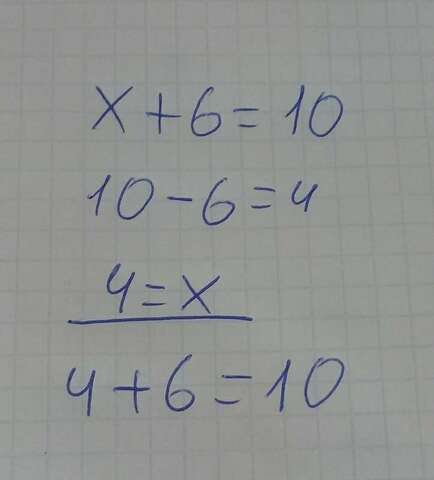 x+6=10
10-6=4
4=x
4+6=10